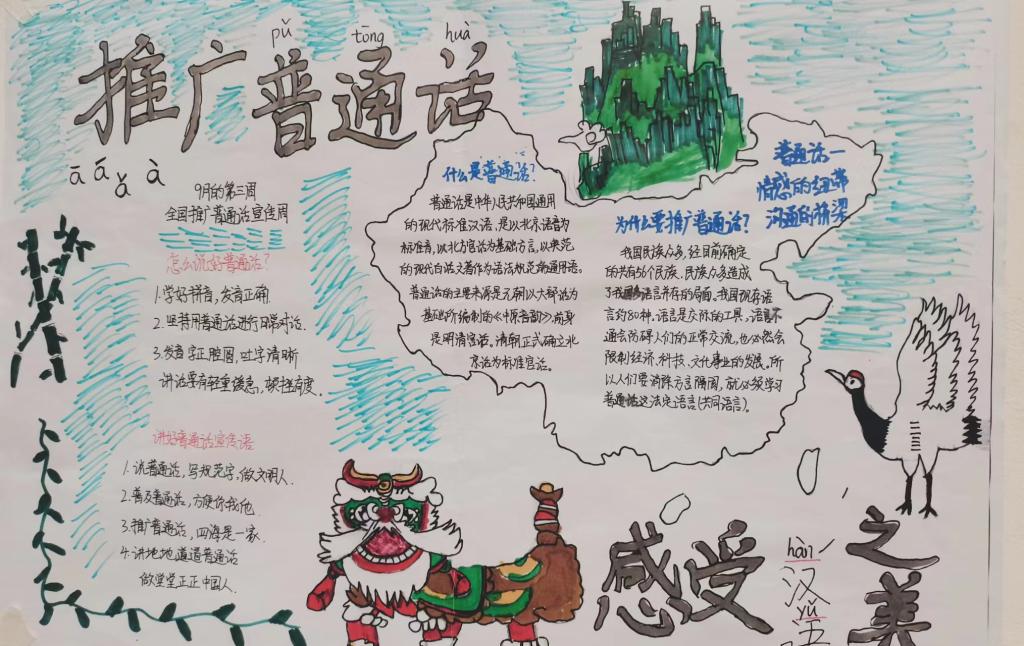 pǔ tōng huà
推广普通话
ā á ǎ à
9月的第三周
全国推广普通话宣传周
怎么说好普通话?
1.学好拼音,发音正确.
2.坚持用普通话进行日常对话.
3.发音字正腔圆,吐字清晰
讲话要有轻重缓急,顿挫有度.
讲好普通话宣传语
1.说普通话,写规范字,做文明人.
2.普及普通话,方便你我他.
3.推广普通话,四海是一家.
4.讲地地道道普通话
做堂堂正正中国人.
什么是普通话?
普通话是中华人民共和国通用
的现代标准汉语,是以北京语音为
标准音,以北方官话为基础方言,以典范
的现代白话文著作为语法规范的通用语。
普通话的主要来源是元朝以大都话为
基础所编制的《中原音韵》,前身
是明清官话。清朝正式确立北
京话为标准官话。
普通话—
情感的纽带
沟通的桥梁
为什么要推广普通话?
我国民族众多,经目前确定
的共有56个民族、民族众多造成
了我国多语言并存的局面。我国现存语
言约80种。语言是交际的工具。语言不
通会妨碍人们的正常交流,也必然会
限制经济、科技、文化事业的发展。所
以人们要消除方言隔阂,就必须学习
普通话这法定语言(共同语言)。
感受
hàn yǔ
汉语
之美